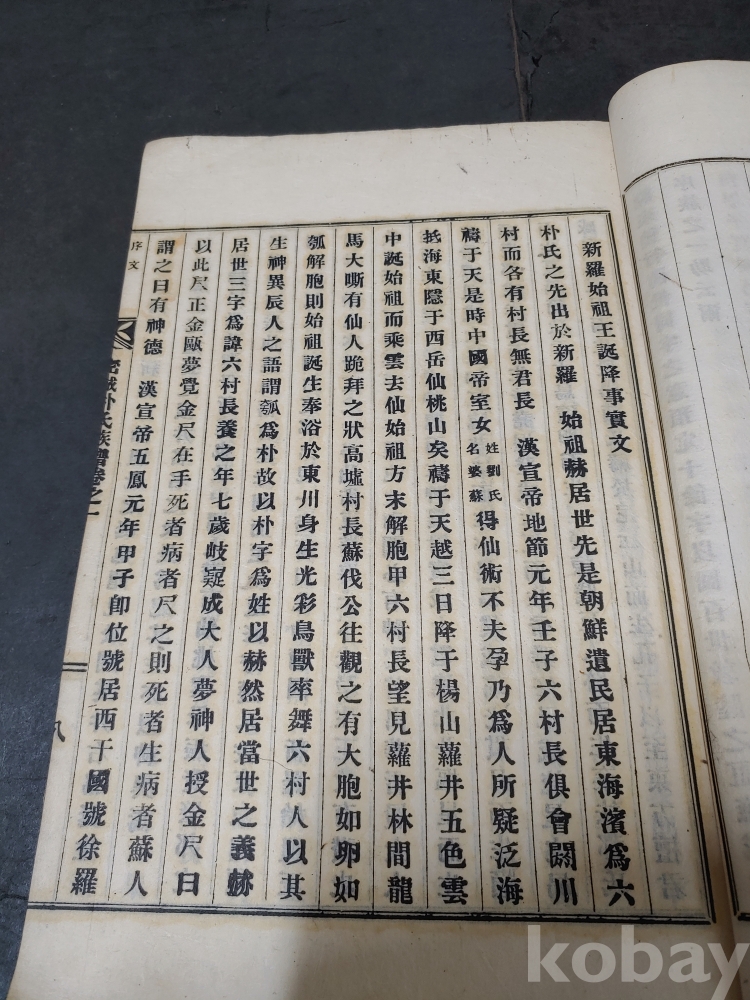 新羅始祖王誕降事實文
朴氏之先出於新羅 始祖赫居世先是朝鮮遺民居東海濱爲六
村而各有村長無君長 漢宣帝地節元年壬子六村長俱會閼川
禱于天是時中國帝室女姓劉氏名婆蘇得仙術不夫孕乃爲人所疑泛海
抵海東隱于西岳仙桃山矣禱于天越三日降于楊山蘿井五色雲
中誕始祖而乘雲去仙始祖方未解胞甲六村長望見蘿井林間龍
馬大嘶有仙人跪拜之狀高墟村長蘇伐公往觀之有大胞如卵如
瓠解胞則始祖誕生奉浴於東川身生光彩鳥獸率舞六村人以其
生神異辰人之語謂瓠爲朴故以朴字爲姓以赫然居當世之義赫
居世三字爲諱六村長養之年七歲岐嶷成大人夢神人授金尺曰
以此尺正金甌夢覺金尺在手死者病者尺之則死者生病者蘇人
謂之曰有神德 漢宣帝五鳳元年甲子卽位號居西干國號徐羅
序文
密城朴氏族譜卷之一
八
kobay